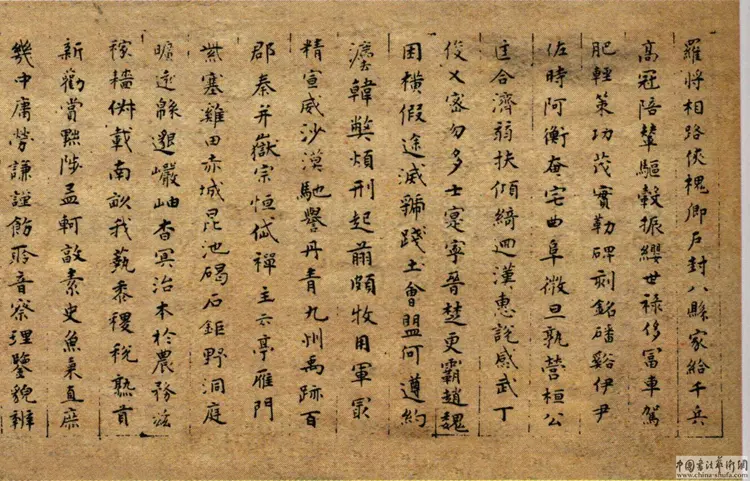 羅將相路俠槐卿戶封八縣家給千兵
高冠陪輦驅轂振纓世祿侈富車駕
肥輕策功茂實勒碑刻銘磻谿伊尹
佐時阿衡奄宅曲阜微旦孰營桓公
匡合濟弱扶傾綺迴漢惠說感武丁
俊乂密勿多士寔寧晉楚更霸趙魏
困橫假途滅虢踐土會盟何遵約
灋韓弊煩刑起翦頗牧用軍冣
精宣威沙漠馳譽丹青九州禹跡百
郡秦并嶽宗恒岱禪主云亭雁門
紫塞雞田赤城昆池碣石鉅野洞庭
曠遠緜邈巖岫杳冥治本於農務茲
稼穡俶載南畝我藝黍稷稅熟貢
新勸賞黜陟孟軻敦素史魚秉直庶
幾中庸勞謙謹飭聆音察理鑒貌辨
中國書法藝術網
www.china-shufa.com